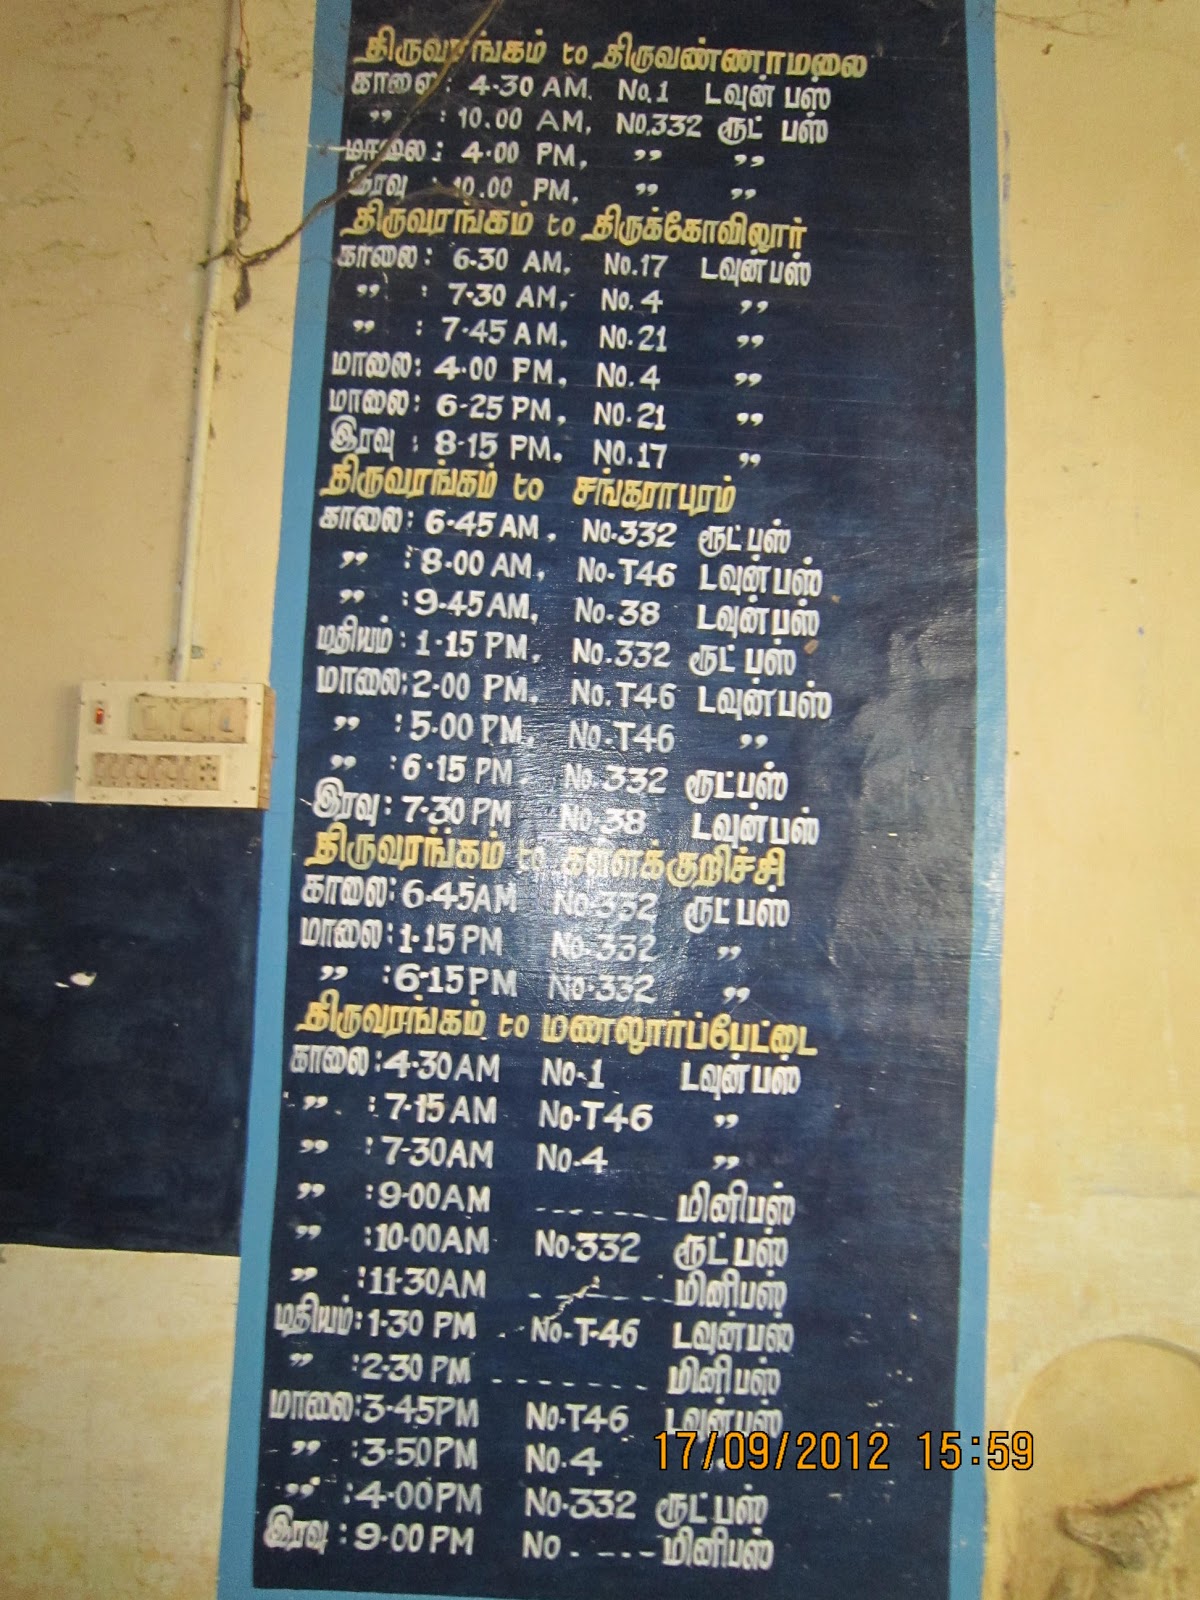 திருவரங்கம் to திருவண்ணாமலை
காலை: 4.30 AM. No.1 டவுன் பஸ்
,, : 10.00 AM, NO.332 ரூட் பஸ்
மாலை: 4.00 PM, ,, ,,
இரவு : 10.00 PM, ,, ,,
திருவரங்கம் to திருக்கோவிலூர்
காலை: 6.30 AM, No.17 டவுன்பஸ்
,, : 7.30 AM, No.4 ,,
,, : 7.45 AM, No.21 ,,
மாலை: 4.00 PM, No.4 ,,
மாலை: 6-25 PM, NO.21 ,,
இரவு : 8-15 PM, NO.17 ,,
திருவரங்கம் to சங்கராபுரம்
காலை: 6.45 AM, No.332 ரூட்பஸ்
,, : 8.00 AM, No.T46 டவுன்பஸ்
,, : 9.45 AM, No.38 டவுன்பஸ்
மதியம் : 1.15 PM, No.332 ரூட் பஸ்
மாலை: 2.00 PM, No.T46 டவுன்பஸ்
,, : 5.00 PM, No.T46 ,,
,, : 6.15 PM, No.332 ரூட்பஸ்
இரவு: 7.30 PM No.38 டவுன்பஸ்
திருவரங்கம் to கள்ளக்குறிச்சி
காலை: 6.45AM No.332 ரூட்பஸ்
மாலை: 1.15 PM No.332 ,,
,, : 6-15 PM No.332 ,,
திருவரங்கம் to மணலூர்ப்பேட்டை
காலை: 4.30AM No.1 டவுன்பஸ்
,, : 7.15 AM No.T46 ,,
,, : 7-30AM No.4 ,,
,, : 9.00AM ------- மினிபஸ்
,, : 10.00AM No.332 ரூட்பஸ்
,, : 11.30AM ------- மினிபஸ்
மதியம்: 1.30 PM No.T.46 டவுன்பஸ்
,, : 2.30 PM -------- மினிபஸ்
மாலை: 3.45PM No.T46 டவுன்பஸ்
,, : 3.50PM No.4 ,,
,, : 4.00PM No.332 ரூட்பஸ்
இரவு : 9.00 PM NO.---- மினிபஸ்
17/09/2012 15:59